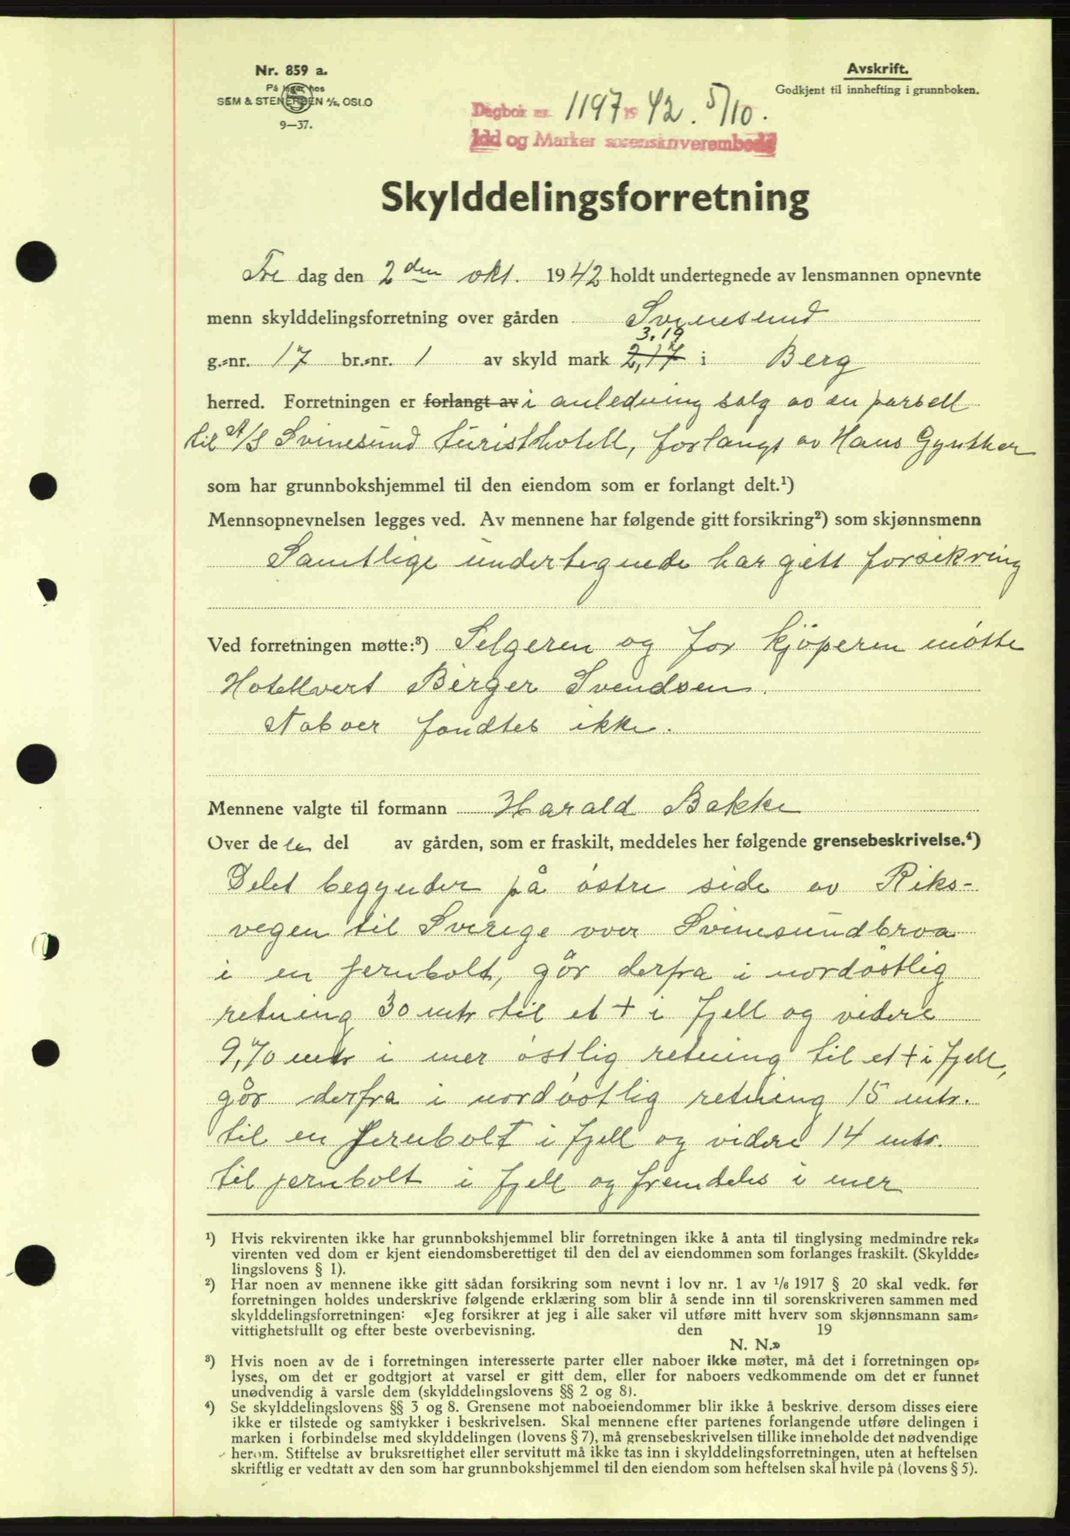 Nr. 859 a.
På lager hos
SEM & STENERSEN A/S, OSLO
9—37.
Avskrift.
Godkjent til innhefting i grunnboken.
Dagbok nr. 1197 19 42. 5/10.
Idd og Marker sorenskriverembede
Skylddelingsforretning
Fre dag den 2den okt. 1942 holdt undertegnede av lensmannen opnevnte
menn skylddelingsforretning over gården Svinesund
3.19
g.-nr. 17 br.-nr. 1 av skyld mark 2,17 i Berg
herred. Forretningen er forlangt av i anledning salg av en parsell
til A/S Svinesund turisthotell, forlangt av Hans Gynther
som har grunnbokshjemmel til den eiendom som er forlangt delt.¹)
Mennsopnevnelsen legges ved. Av mennene har følgende gitt forsikring²) som skjønnsmenn
Samtlige undertegnede har gitt forsikring
Ved forretningen møtte:³) Selgeren og for kjöperen mötte
Hotellvert Birger Svendsen.
Naboer fandtes ikke.
Mennene valgte til formann Harald Bakke
Over de en del av gården, som er fraskilt, meddeles her følgende grensebeskrivelse.⁴)
Delet begynder på östre side av Riks-
vegen til Sverige over Svinesundbroa
i en jernbolt, går derfra i nordöstlig
retning 30 mtr til et + i fjell og videre
9,70 mtr i mer östlig retning til et + i fjell,
går derfra i nordöstlig retning 15 mtr.
til en jernbolt i fjell og videre 14 mtr.
til jernbolt i fjell og fremdeles i mer
¹) Hvis rekvirenten ikke har grunnbokshjemmel blir forretningen ikke å anta til tinglysing medmindre rek-
virenten ved dom er kjent eiendomsberettiget til den del av eiendommen som forlanges fraskilt. (Skyldde-
lingslovens § 1).
²) Har noen av mennene ikke gitt sådan forsikring som nevnt i lov nr. 1 av 1/6 1917 § 20 skal vedk. før
forretningen holdes underskrive følgende erklæring som blir å sende inn til sorenskriveren sammen med
skylddelingsforretningen: «Jeg forsikrer at jeg i alle saker vil utføre mitt hverv som skjønnsmann sam-
vittighetsfullt og efter beste overbevisning. den 19
N. N.»
³) Hvis noen av de i forretningen interesserte parter eller naboer ikke møter, må det i forretningen op-
lyses, om det er godtgjort at varsel er gitt dem, eller for naboers vedkommende om det er funnet
unødvendig å varsle dem (skylddelingslovens §§ 2 og 8).
⁴) Se skylddelingslovens §§ 3 og 8. Grensene mot naboeiendommer blir ikke å beskrive, dersom disses eiere
ikke er tilstede og samtykker i beskrivelsen. Skal mennene efter partenes forlangende utføre delingen i
marken i forbindelse med skylddelingen (lovens § 7), må grensebeskrivelsen tillike inneholde det nødvendige
herom. Stiftelse av bruksrettighet eller servitutt må ikke tas inn i skylddelingsforretningen, uten at heftelsen
skriftlig er vedtatt av den som har grunnbokshjemmel til den eiendom som heftelsen skal hvile på (lovens § 5).